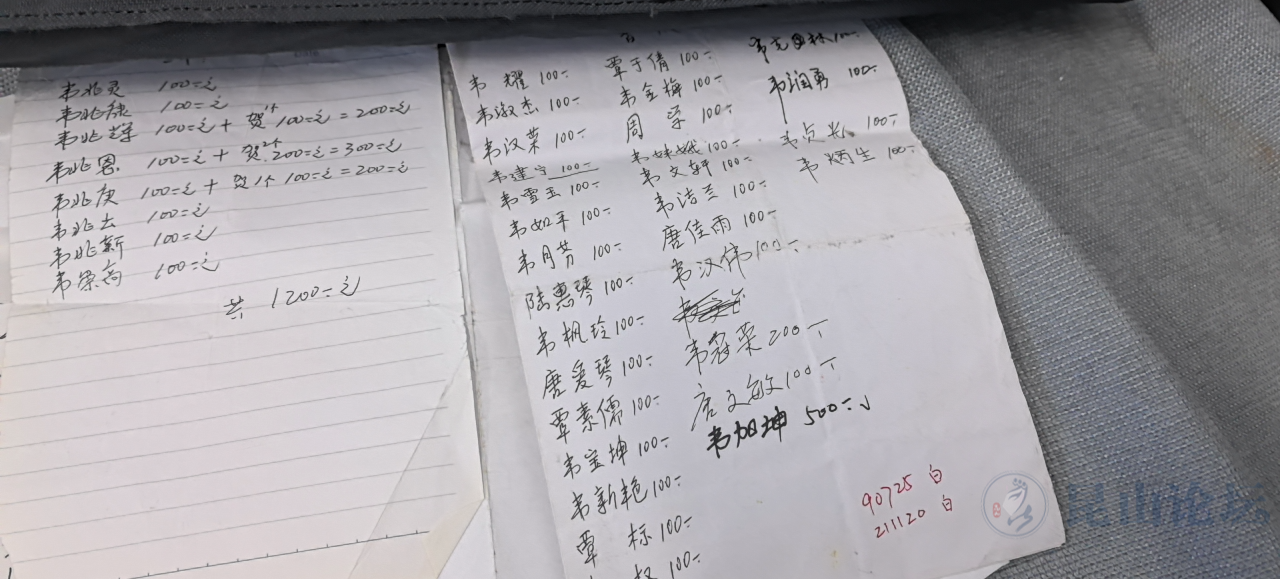 韦兆灵 100=元
韦兆禄 100=元
韦兆辉 100=元 + 贺1个 100=元 = 200=元
韦兆恩 100=元 + 贺2个 200=元 = 300=元
韦兆庚 100=元 + 贺1个 100=元 = 200=元
韦兆云 100=元
韦兆新 100=元
韦荣高 100=元
共 1200=元
韦 耀 100=
韦淑杰 100=
韦汉荣 100=
韦建宁 100=
韦雪玉 100=
韦如平 100=
韦月芳 100=
陆惠琴 100=
韦枫玲 100=
唐爱琴 100=
覃素儒 100=
韦宝坤 100=
韦新艳 100=
覃 标 100=
100=
覃于倩 100=
韦金梅 100=
周 100=
韦妹娥 100=
韦文轩 100=
韦洁兰 100=
唐佳雨 100=
韦汉伟 100=
韦冠荣 200=
唐文敏 100=
韦加坤 500=√
韦克林 100=
韦润勇 100=
韦贞长 100=
韦炳生 100=
90725 白
211120 白
昆山论坛